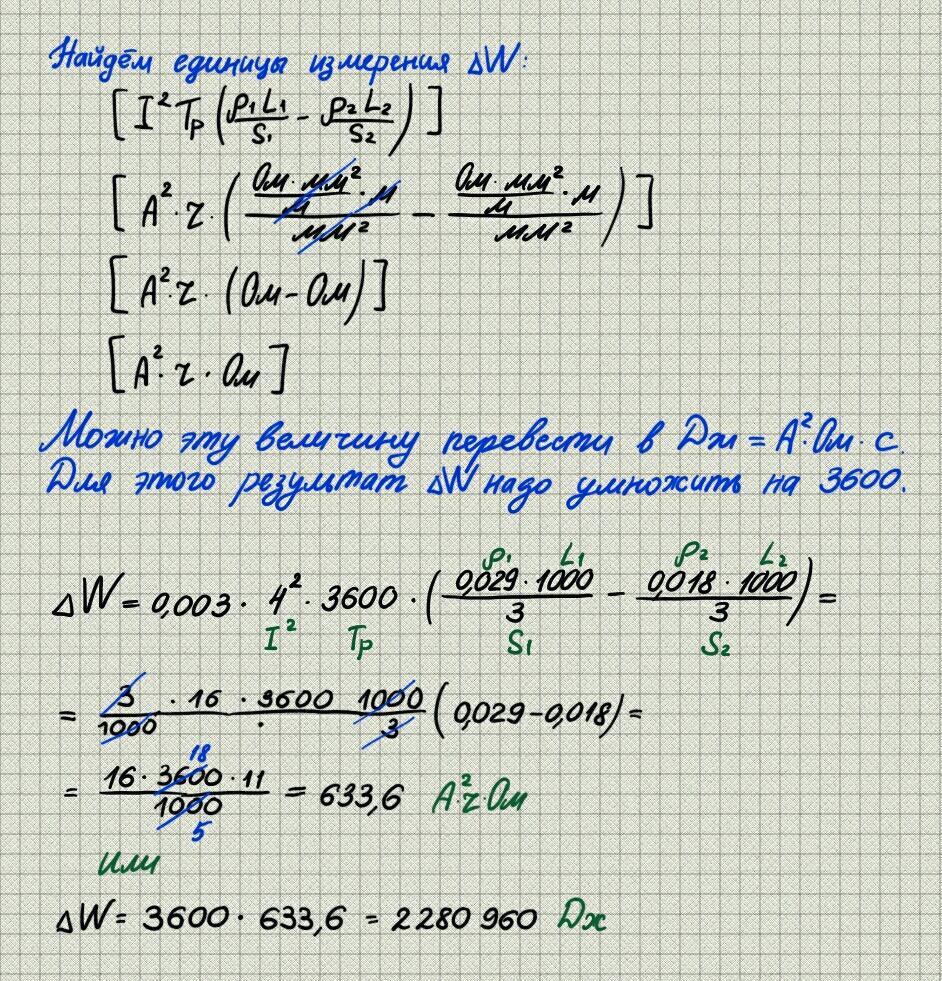 Найдём единицы измерения ΔW:
[I² Tр (ρ₁ L₁/S₁ - ρ₂ L₂/S₂)]
[A² · ч · (Ом · мм²/м · м / мм² - Ом · мм²/м · м / мм²)]
[A² · ч · (Ом - Ом)]
[A² · ч · Ом]
Можно эту величину перевести в Дж = A² · Ом · с.
Для этого результат ΔW надо умножить на 3600.
ρ₁ L₁ ρ₂ L₂
ΔW = 0,003 · 4² · 3600 · (0,029 · 1000/3 - 0,018 · 1000/3) =
I² Tр S₁ S₂
= 3/1000 · 16 · 3600 · 1000/3 (0,029 - 0,018) =
18
= 16 · 3600 · 11/1000 = 633,6 A² · ч · Ом
5
или
ΔW = 3600 · 633,6 = 2 280 960 Дж